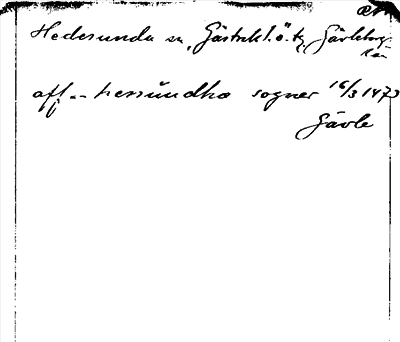 Hedesunda sn, Gästrikl. ö. tg, Gävleborgs
län
aff -- hessundha sogner 16/3 1473
Gävle